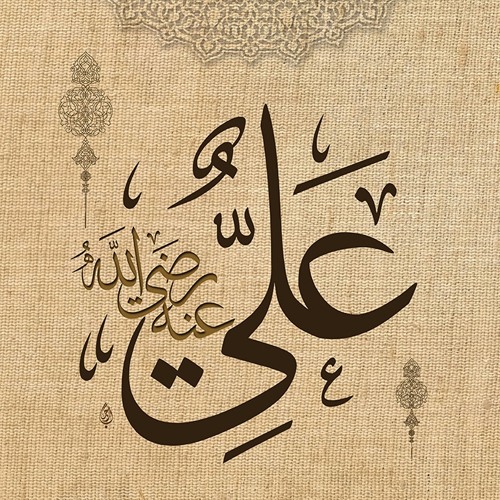 عَلِيٌّ
رَضِيَ اللَّهُ
عنه